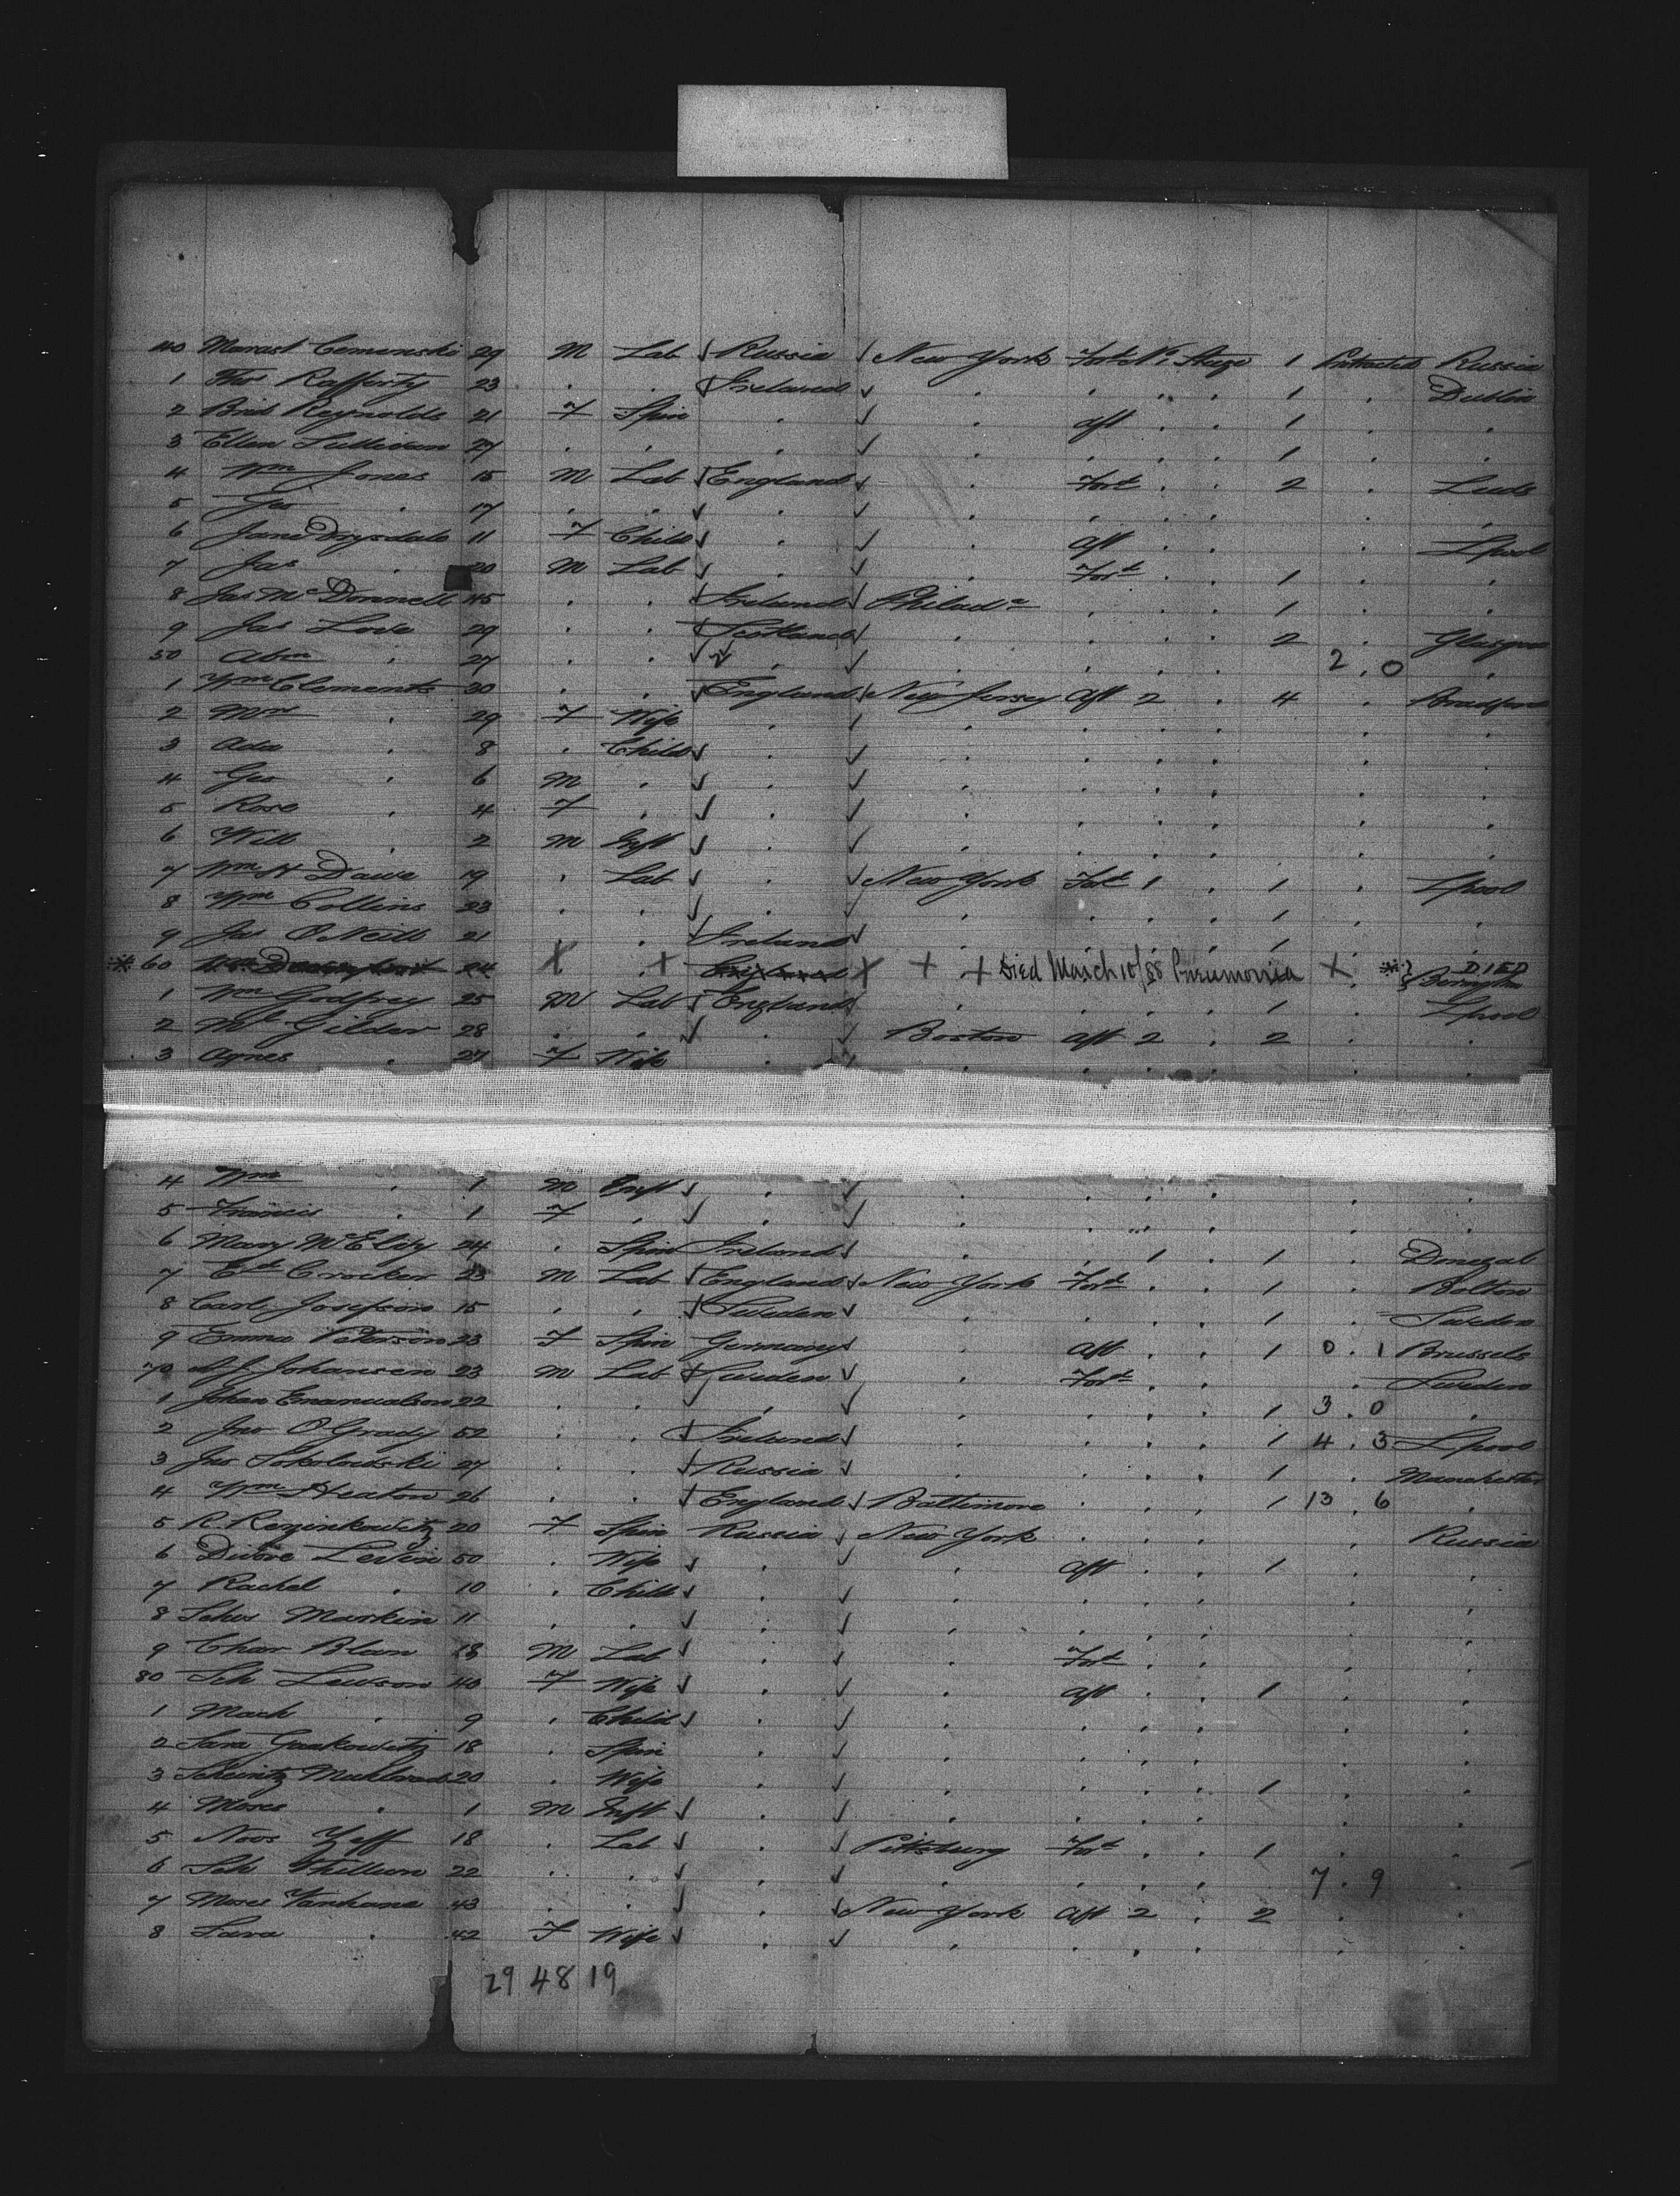 40 Marast Cemenski 29 M Lab Russia New York Fort No 1 Stege 1 Protracted Russia
1 Thos Rafferty 23 . . Ireland . . . . 1 . Dublin
2 Brid Reynolds 21 F Spin . . aft . . 1 . .
3 Ellen Sullivan 27 . . . . . . . 1 . .
4 Wm Jones 15 M Lab England . Fort . . 2 . Leeds
5 Geo . 17 . . . . . . . . .
6 Jane Drysdale 11 F Child . . aft . . . L'pool
7 Jas . 20 M Lab . . Fort . . 1 . .
8 Jas McDonnell 45 . . Ireland Philada . . . 1 . .
9 Jas Love 29 . . Scotland . . . . 2 . Glasgow
50 Abm . 27 . . . . . . . 2 . 0 .
1 Wm Clements 30 . . England New Jersey aft 2 . 4 . Bradford
2 Mrs . 29 F Wife . . . . . . .
3 Ada . 8 . Child . . . . . . .
4 Geo . 6 M . . . . . . . .
5 Rose . 4 F . . . . . . . .
6 Will . 2 M Inft . . . . . . .
7 Wm H Dawe 19 . Lab . New York Fort 1 . 1 . L'pool
8 Wm Collins 23 . . . . . . . 1 . .
9 Jas O'Neill 21 . . Ireland . . . . 1 . .
60 24 X + England X + + Died March 10/88 Pneumonia X DIED
1 Wm Godfrey 25 M Lab England . . . . 1 . L'pool
2 Mk Gilder 28 . . . Boston aft 2 . 2 . .
3 Agnes . 27 F Wife . . . . . . .
4 Wm . 1 M Inft . . . . . . .
5 Francis . 1 F . . . . . . . .
6 Mary McElity 24 . Spin Ireland . . 1 . 1 . Donegal
7 Ed Crocker 23 M Lab England New York Fort . . 1 . Bolton
8 Carl Josefson 15 . . Sweden . . . . 1 . Sweden
9 Emma Peterson 23 F Spin Germany . aft . . 1 0 . 1 Brussels
70 Johansen 23 M Lab Sweden . Fort . . . Sweden
1 Johan Emanualson 22 . . . . . . . 1 3 . 0 .
2 Jno O'Grady 52 . . Ireland . . . . 1 4 . 3 L'pool
3 Jno Sokolowski 27 . . Russia . . . . 1 . Manchester
4 Wm Heaton 26 . . England Baltimore . . . 1 13 . 6 .
5 R Rezinkowitz 20 F Spin Russia New York . . . . Russia
6 Divore Levin 50 . Wife . . aft . . 1 . .
7 Rachel . 10 . Child . . . . . . .
8 Markin 11 . . . . . . . . .
9 Char Blan 18 M Lab . . Fort . . . .
80 Sch Lewson 40 F Wife . . aft . . 1 . .
1 Mach . 9 . Child . . . . . . .
2 Sara 18 . Spin . . . . . . .
3 20 . Wife . . . . . 1 . .
4 Moses . 1 M Inft . . . . . . .
5 Noos Yeff 18 . Lab . Pittsburg Fort . . 1 . .
6 Sch 22 . . . . . . . 7 . 9 .
7 Moses 43 . . . New York aft 2 . 2 . .
8 Sara . 42 F Wife . . . . . . .
29 48 19